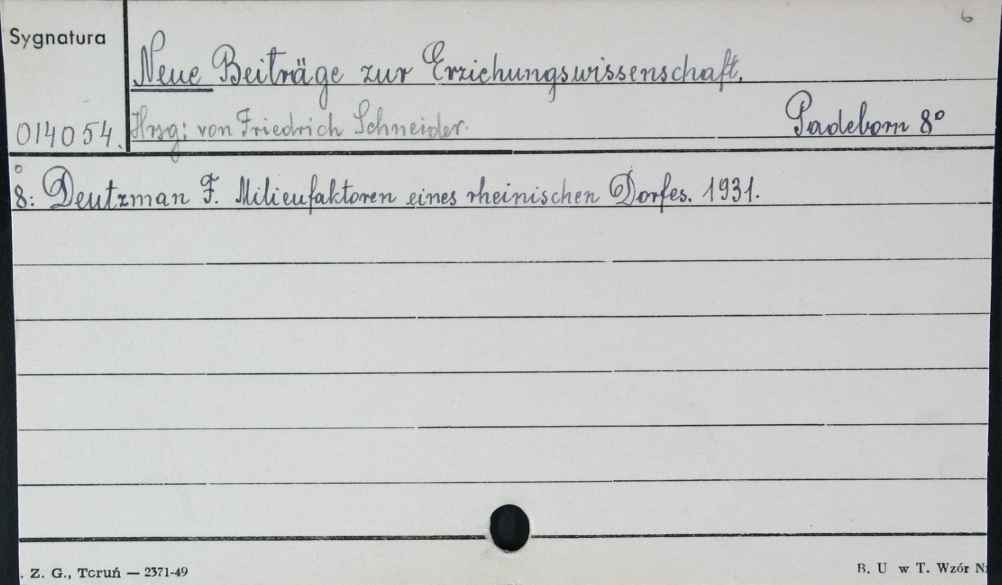 6
Sygnatura
Neue Beiträge zur Erziehungswissenschaft.
014054.
Hrsg: von Friedrich Schneider.
Padeborn 8°
8: Deutzman F. Milieufaktoren eines rheinischen Dorfes. 1931.
. Z. G., Toruń — 2371-49
B. U w T. Wzór N